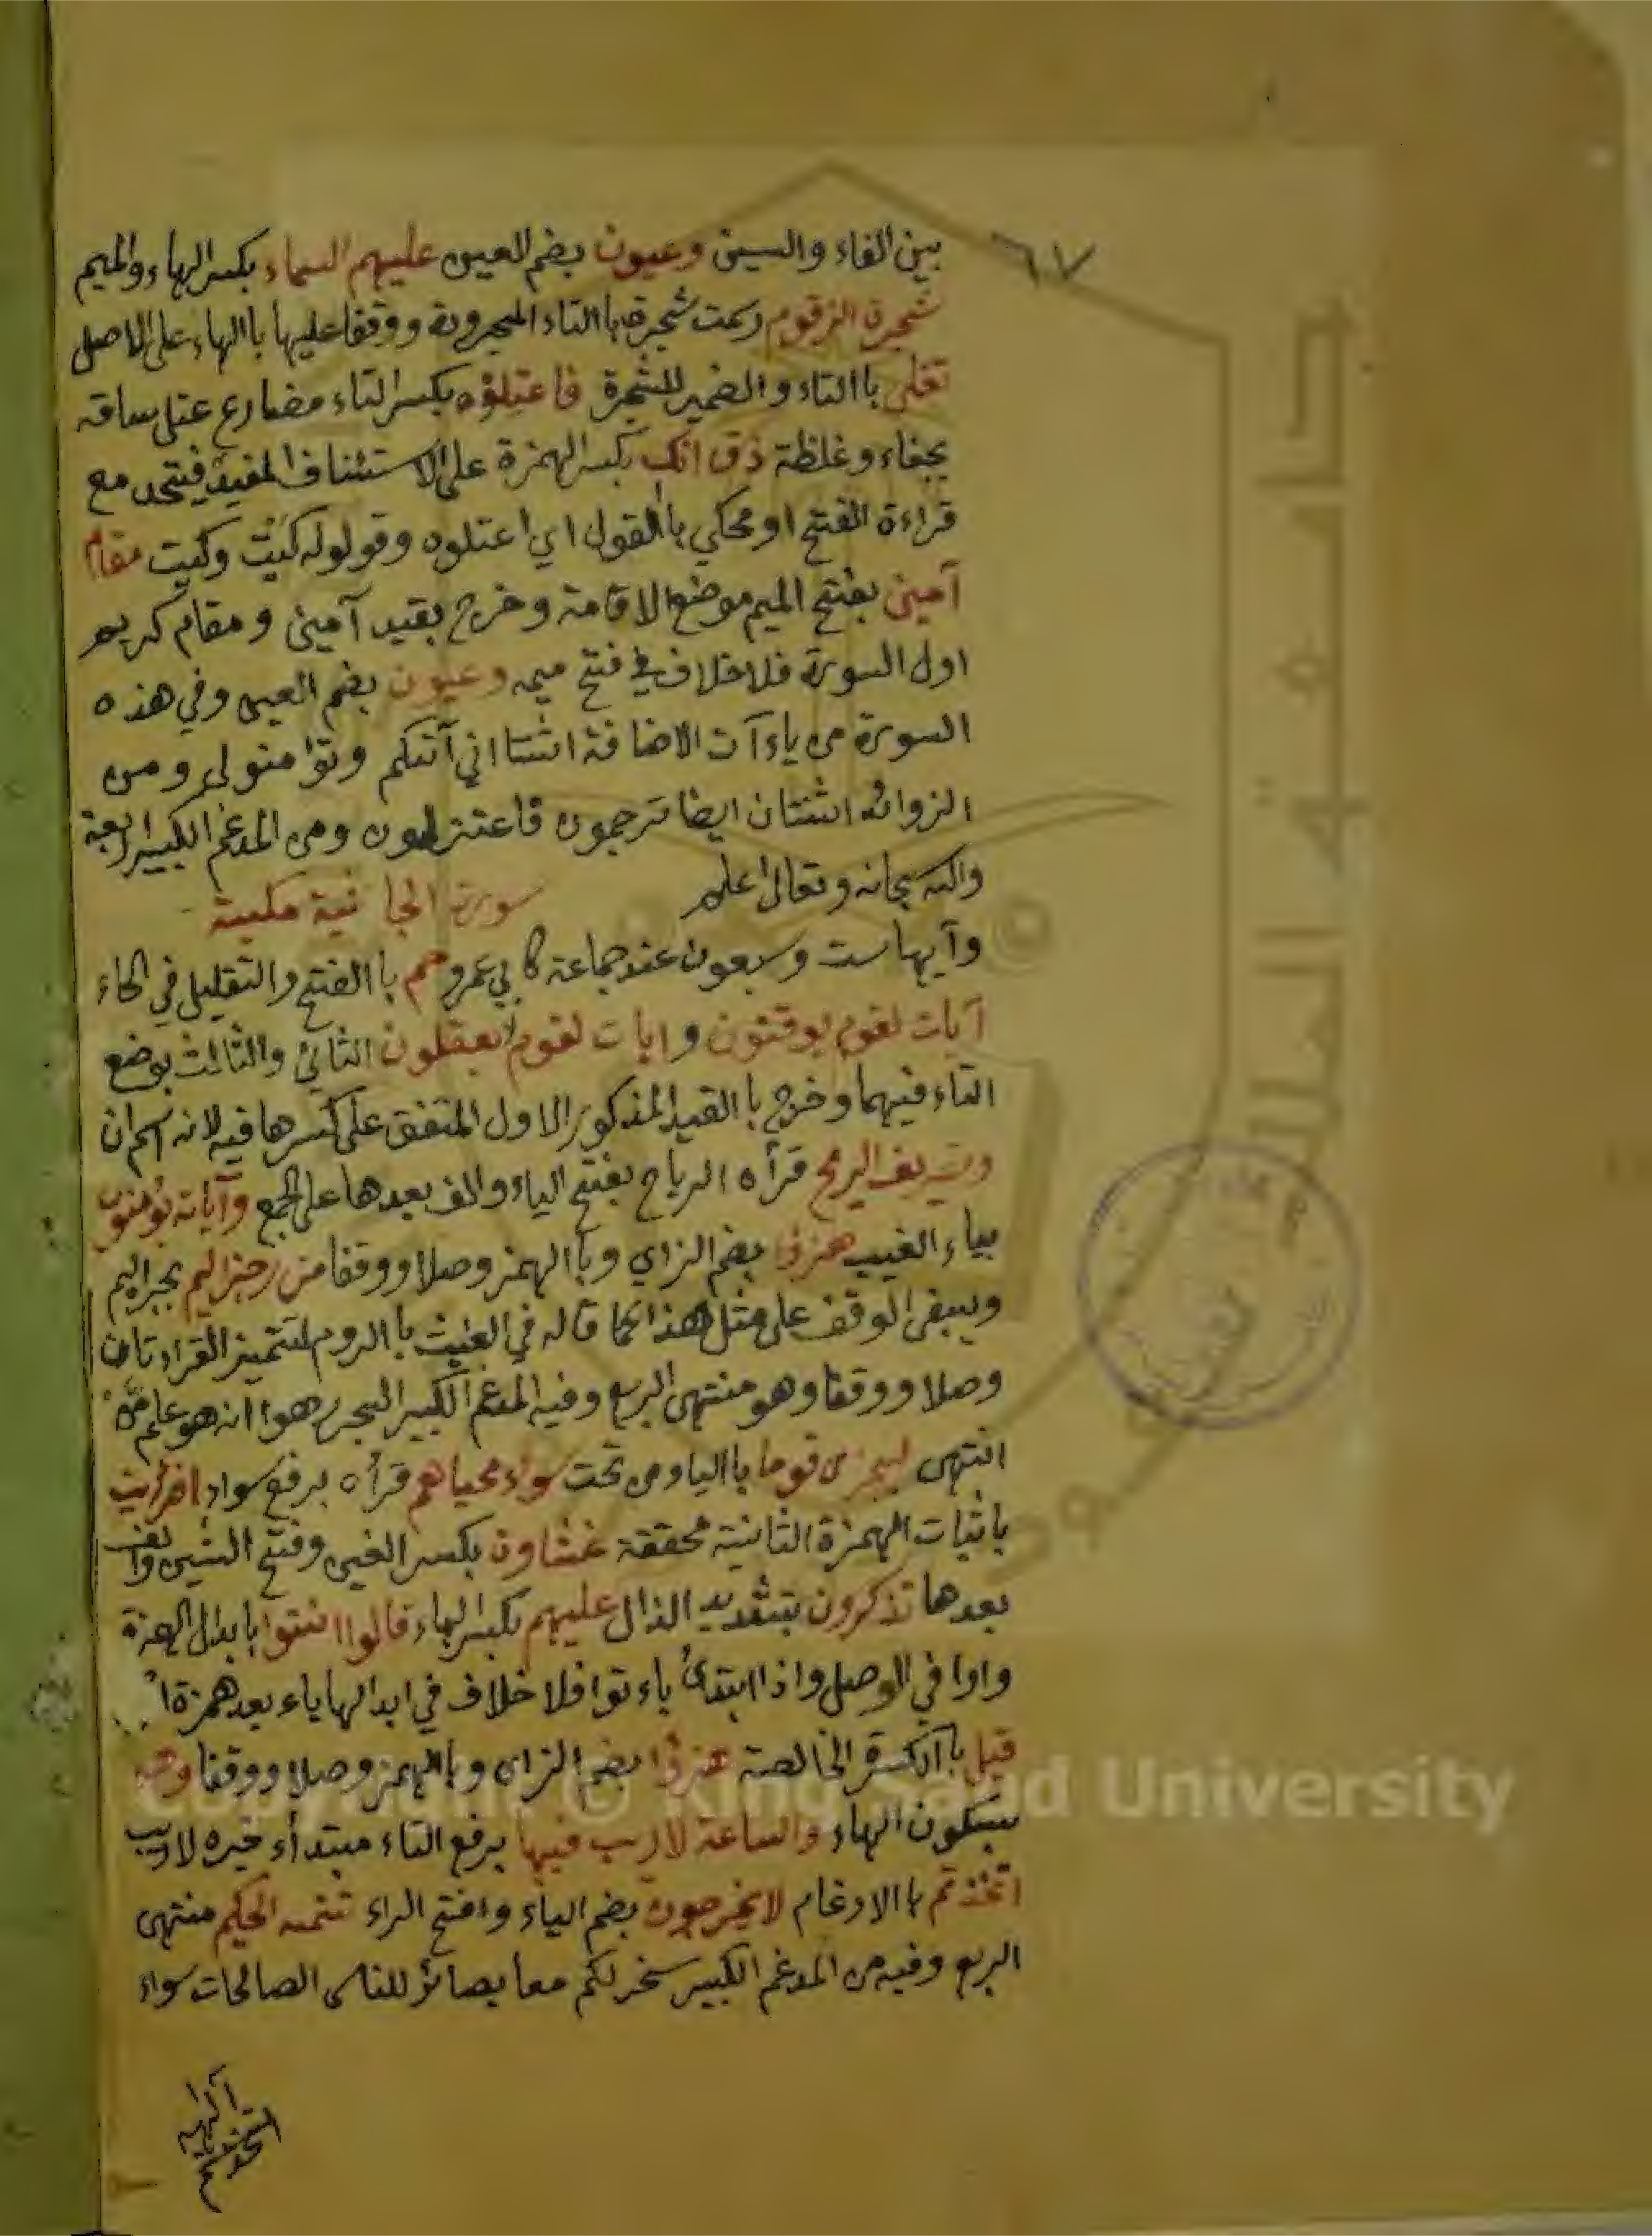 ٦٧
بين الفاء والسين وعيون بضم العين عليهم السماء بكسر الهاء والميم
شجرة الزقوم رسمت شجرة باالتاء المجرورة ووقفا عليها باالهاء على الاصل
تغلى باالتاء والضمير للشجرة فاعتلوه بكسر التاء مضارع عتل ساقه
بجفاء وغلظة ذق انك بكسر الهمزة على الاستئناف المفيد فيتحد مع
قراءة الفتح او محكي باالقول اي اعتلوه وقولوله كيت وكيت مقام
آمين بفتح الميم موضع الاقامة وخرج بقيد آمين ومقام كريم
اول السورة فلا خلاف في فتح ميمه وعيون بضم العين وفي هذه
السورة من ياءآت الاضافة اثنتا اني آتيكم وتؤمنو لي ومن
الزوائد اثنتان ايضا ترجمون فاعتزلون ومن المدغم الكبير اربعة
والله سبحانه وتعالى اعلم سورة الجاثية مكية
وآيها ست وسبعون عند جماعة كابي عمرو حم باالفتح والتقليل في الحاء
آيات لقوم يوقنون وايات لقوم يعقلون الثاني والثالث بوضع
التاء فيهما وخرج باالقيد المذكور الاول المتفق على كسرها فيه لانه اسم ان
وتصريف الريح قرأه الرياح بفتح الياء والف بعدها على الجمع وآياته يؤمنون
بياء الغيب هزؤا بضم الزاي وباالهمز وصلا ووقفا من رجز اليم بجر اليم
وينبغى الوقف على مثل هذا كما قاله في الغيث باالروم لتتميز القراءتان
وصلا ووقفا وهو منتهى الربع وفيه المدغم الكبير البحر هوا انه هو علم من
انتهى ليجزى قوما باالياء ومن تحت سواء محياهم قرأه برفع سواء افرأيت
باثبات الهمزة الثانية محققة غشاوة بكسر الغين وفتح الشين والف
بعدها تذكرون بتشديد الذال عليهم بكسر الهاء قالوا ائتوا بابدال الهمزة
واوا في الوصل واذا ابتدئ باءتوا فلا خلاف في ابدالها ياء بعد همزة
قيل باالكسرة الخالصة هزؤا بضم الزاى وباالهمز وصلا ووقفا وهو
بسكون الهاء والساعة لا ريب فيها برفع التاء مبتدأء خبره لا ريب
اتخذتم باالادغام لا يخرجون بضم الياء وافتح الراء تتمه الحكيم منتهى
الربع وفيه من المدغم الكبير سخر لكم معا بصائر للناس الصالحات سواء
Copyright © King Saud University